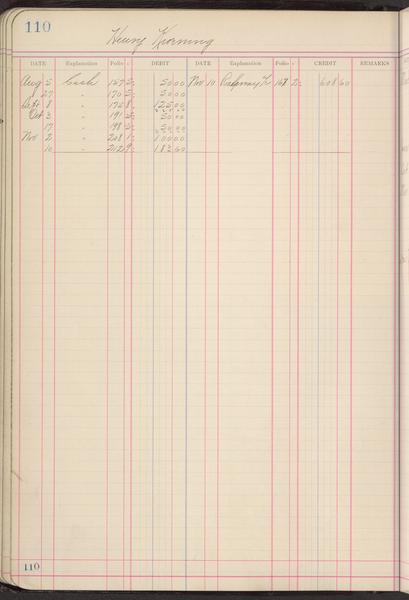 110
Henry
DATE Explanation Folio DEBIT DATE Explanation Folio CREDIT REMARKS
Aug 5 Cash 167 50 00 Nov 10 168 608 60
27 " 170 50 00
Sept 8 " 178 125 00
Oct 3 " 191 50 00
17 " 198 50 00
Nov 2 " 208 100 00
10 " 212 183 60
110